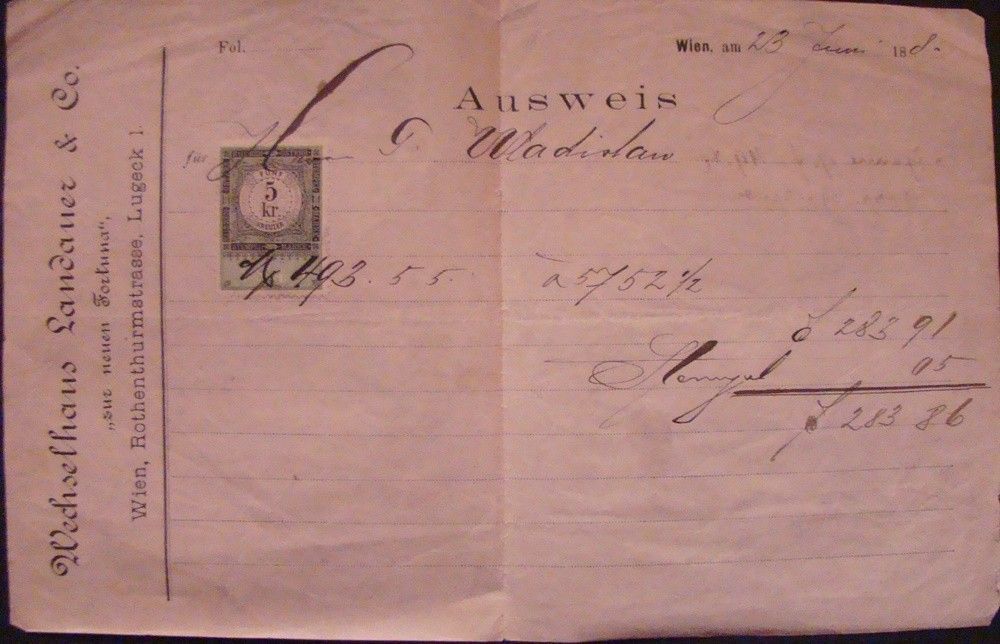 Wechselhaus Landauer & Co.
„zur neuen Fortuna“,
Wien, Rothenthurmstrasse, Lugeck 1.
Fol.
Wien, am 23 Juni 188.
Ausweis
für Herrn G. Wladislaw
FÜNF
5
kr.
KREUZER
STEMPEL MARKE
493.55. à 57 52 1/2
f 283 91
Stempel 05
f 283 86